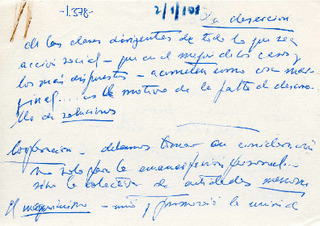 -1.378-
2/1/101
La deserción
de las clases dirigentes de todo lo que sea
acción social - que en el mejor de los casos y
los más dispuestos - acometen como cosa mar-
ginal.... es el motivo de la falta de desarro-
llo de soluciones
Cooperación - debemos tomar en consideración
no solo por la emancipación personal...
sino la colectiva de entidades menores
El mayorazgo - y promovió la unión d